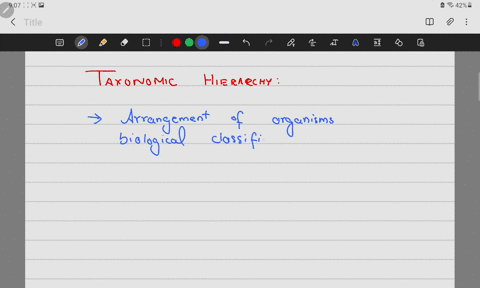 9:07
42%
Title
TAXONOMIC HIERARCHY:
→ Arrangement of organisms
biological classifi